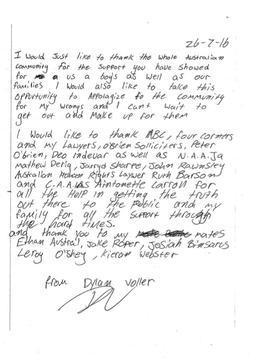 26-7-16
I would Just like to thank the whole Australian
community for the support you have showed
for us a boys as well as our
families I would also like to take this
opportunity to Appologize to the community
for my wrongs and I can't wait to
get out and Make up for them
I would like to thank ABC, four corners
and my Lawyers, O'brien Sollicitors, Peter
O'Brien, Dev Indevar as well as N.A.A.Ja
Mathew Derig, Jarryd Sharre, John Rawnsley
Australian Human Rights Lawyer Ruth Barson
and C.A.A.L.A.S Aintonette Carroll for
all the Help in getting the truth
out there to the Public and my
family for all the support through
the hard times.
and thank you to my mates
Ethan Austral, Jake Roper, Josiah Binsaris
Leroy O'Shey, Kieran Webster
from Dylan Voller